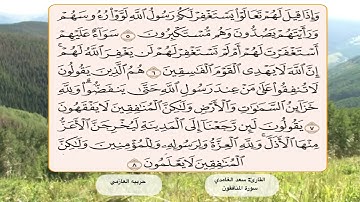 وَإِذَا قِيلَ لَهُمْ تَعَالَوْا يَسْتَغْفِرْ لَكُمْ رَسُولُ اللَّهِ لَوَّوْا رُءُوسَهُمْ
وَرَأَيْتَهُمْ يَصُدُّونَ وَهُم مُّسْتَكْبِرُونَ ٥ سَوَاءٌ عَلَيْهِمْ
أَسْتَغْفَرْتَ لَهُمْ أَمْ لَمْ تَسْتَغْفِرْ لَهُمْ لَن يَغْفِرَ اللَّهُ لَهُمْ
إِنَّ اللَّهَ لَا يَهْدِي الْقَوْمَ الْفَاسِقِينَ ٦ هُمُ الَّذِينَ يَقُولُونَ
لَا تُنفِقُوا عَلَىٰ مَنْ عِندَ رَسُولِ اللَّهِ حَتَّىٰ يَنفَضُّوا وَلِلَّهِ
خَزَائِنُ السَّمَاوَاتِ وَالْأَرْضِ وَلَٰكِنَّ الْمُنَافِقِينَ لَا يَفْقَهُونَ
٧ يَقُولُونَ لَئِن رَّجَعْنَا إِلَى الْمَدِينَةِ لَيُخْرِجَنَّ الْأَعَزُّ
مِنْهَا الْأَذَلَّ وَلِلَّهِ الْعِزَّةُ وَلِرَسُولِهِ وَلِلْمُؤْمِنِينَ وَلَٰكِنَّ
الْمُنَافِقِينَ لَا يَعْلَمُونَ ٨
القارئ سعد الغامدي
سورة المنافقون
خربيه العازمي